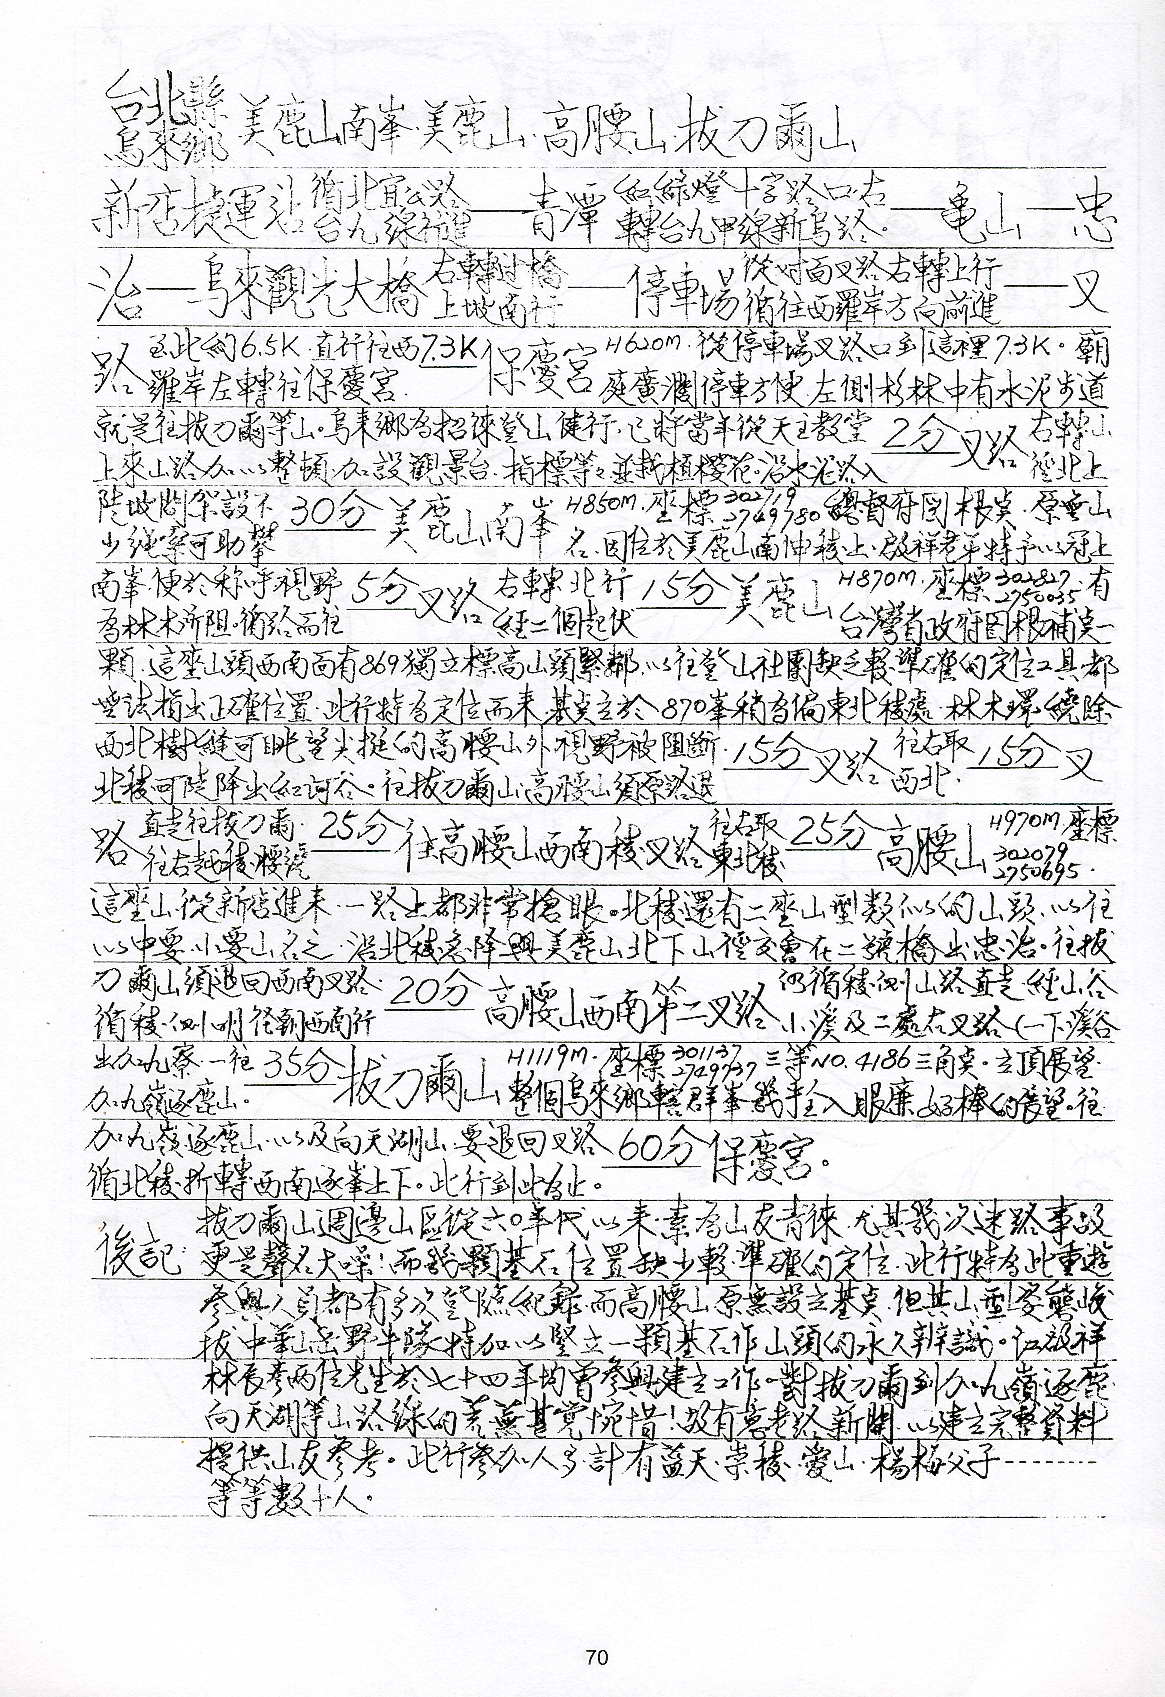 台北縣
烏來鄉 美鹿山南峯·美鹿山·高腰山·拔刀爾山
新店捷運站 循北宜公路 台九線行進 ── 青潭 紅綠燈十字路口右 轉台九甲線新烏路。 ── 龜山 ── 忠
治 ── 烏來觀光大橋 右轉過橋 上坡南行 ── 停車場 從對面叉路右轉上行 循往西羅岸方向前進 ── 叉
路 至此約6.5K·直行往西 羅岸左轉往保慶宮. 7.3K 保慶宮 H620M·從停車場叉路口到這裡7.3K。廟 庭廣濶停車方便·左側杉林中有水泥步道
就是往拔刀爾等山。烏來鄉為招徠登山健行·已將當年從天主教堂
上來山路加以整頓·加設觀景台·指標等等並栽植櫻花。沿水泥路入 2分 叉路 右轉山 徑北上
陡坡間架設不 少繩索可助攀 30分 美鹿山南峯 H850M·座標 302719 2749780 總督府圖根點·原無山 名·因位於美鹿山南伸稜上·啟祥老弟特予以冠上
南峯·便於称呼視野 為林木所阻·循路而往 5分 叉路 右轉北行 經二個起伏 15分 美鹿山 H870M·座標 302827 2750035·有 台灣省政府圖根補點一
顆·這座山頭西南面有869獨立標高山頭緊鄰·以往登山社團缺乏較準確的定位工具都
無法指出正確位置·此行特為定位而來·基點立於870峯稍為偏東北稜處·林木環繞除
西北樹縫可眺望尖挺的高腰山外視野被阻斷·
北稜可陡降出紅河谷。往拔刀爾山·高腰山須原路退 15分 叉路 往右取 西北. 15分 叉
路 直走往拔刀爾· 往右越稜腰繞 25分 往高腰山西南稜叉路 往右取 東北稜 25分 高腰山 H970M·座標 302079 2750695·
這座山·從新店進來·一路上都非常搶眼。北稜還有二座山型類似的山頭·以往
以中要·小要山名之·沿北稜急降與美鹿山北下山徑交會在二號橋出忠治。往拔
刀爾山須退回西南叉路·
循稜側明徑朝西南行 20分 高腰山西南第二叉路 仍循稜側山路直走·經山谷 小溪及二處右叉路(一下溪谷
出加九寮·一往 加九嶺逐鹿山. 35分 拔刀爾山 H1119M·座標 301137 2749737 三等NO.4186三角點·立頂展望· 整個烏來鄉轄群峯幾乎全入眼廉·好棒的展望。往
加九嶺·逐鹿山·以及向天湖山·要退回叉路
循北稜·折轉西南逐峯上下。此行到此為止。 60分 保慶宮。
後記: 拔刀爾山週邊山區從六〇年代以來·素為山友青徠·尤其幾次迷路事故
更是聲名大噪!而幾顆基石位置缺少較準確的定位·此行特為此重遊·
參與人員都有多次登臨紀錄·而高腰山原無設立基點·但其山型姿態峻
拔·中華山岳野牛隊特加以堅立一顆基石作山頭的永久辨識。江啟祥
林長彥兩位先生於七十四年均曾參與建立工作。對拔刀爾到加九嶺·逐鹿·
向天湖等山路線的荒蕪甚覺惋惜!故有意老路新開·以建立完整資料
提供山友參考。此行參加人多·計有藍天·崇稜·愛山·楊梅父子--------
等等數十人。
70